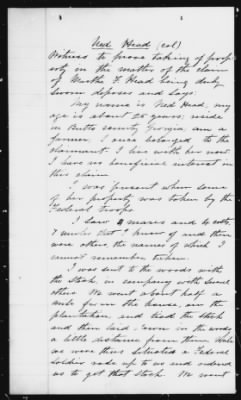 Ned Head (col)
Witness to prove taking of prop-
erty in the matter of the claim
of Martha F. Head being duly
sworn deposes and says
My name is Ned Head, my
age is about 28 years, reside
in Butts county Georgia, am a
farmer, I once belonged to the
claimant. I live with her now
I have no beneficial interest in
this claim
I was present when some
of her property was taken by the
Federal troops.
I saw 2 mares and 4 colts,
7 mules that I know of and there
were others, the names of which I
cannot remember, taken.
I was sent to the woods with
the stock, in company with several
others. We went about half a
mile from the house, on the
plantation, and tied the stock
and then laid down in the woods
a little distance from them. While
we were thus situated a Federal
soldier rode up to us and ordered
us to get that stock. We went